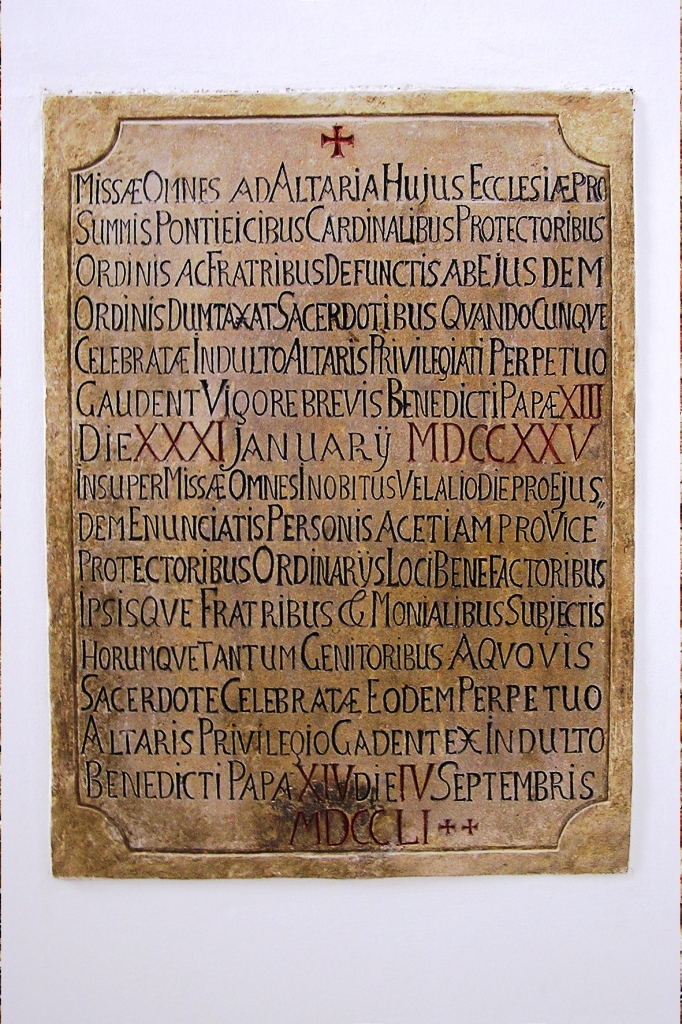 MISSÆ OMNES AD ALTARIA HUJUS ECCLESIÆ PRO
SUMMIS PONTIEICIBUS CARDINALIBUS PROTECTORIBUS
ORDINIS AC FRATRIBUS DEFUNCTIS AB EJUSDEM
ORDINIS DUMTAXAT SACERDOTIBUS QUANDOCUNQVE
CELEBRATÆ INDULTO ALTARIS PRIVILEGIATI PERPETUO
GAUDENT VIGORE BREVIS BENEDICTI PAPÆ XIII
DIE XXXI JANUARÿ MDCCXXV
INSUPER MISSÆ OMNES IN OBITUS VEL ALIO DIE PRO EJUS„
DEM ENUNCIATIS PERSONIS AC ETIAM PRO VICE
PROTECTORIBUS ORDINARÿS LOCI BENEFACTORIBUS
IPSISQVE FRATRIBUS & MONIALIBUS SUBJECTIS
HORUMQVE TANTUM GENITORIBUS A QVOVIS
SACERDOTE CELEBRATÆ EODEM PERPETUO
ALTARIS PRIVILEGIO GADENT EX INDULTO
BENEDICTI PAPÆ XIV DIE IV SEPTEMBRIS
MDCCLI ++